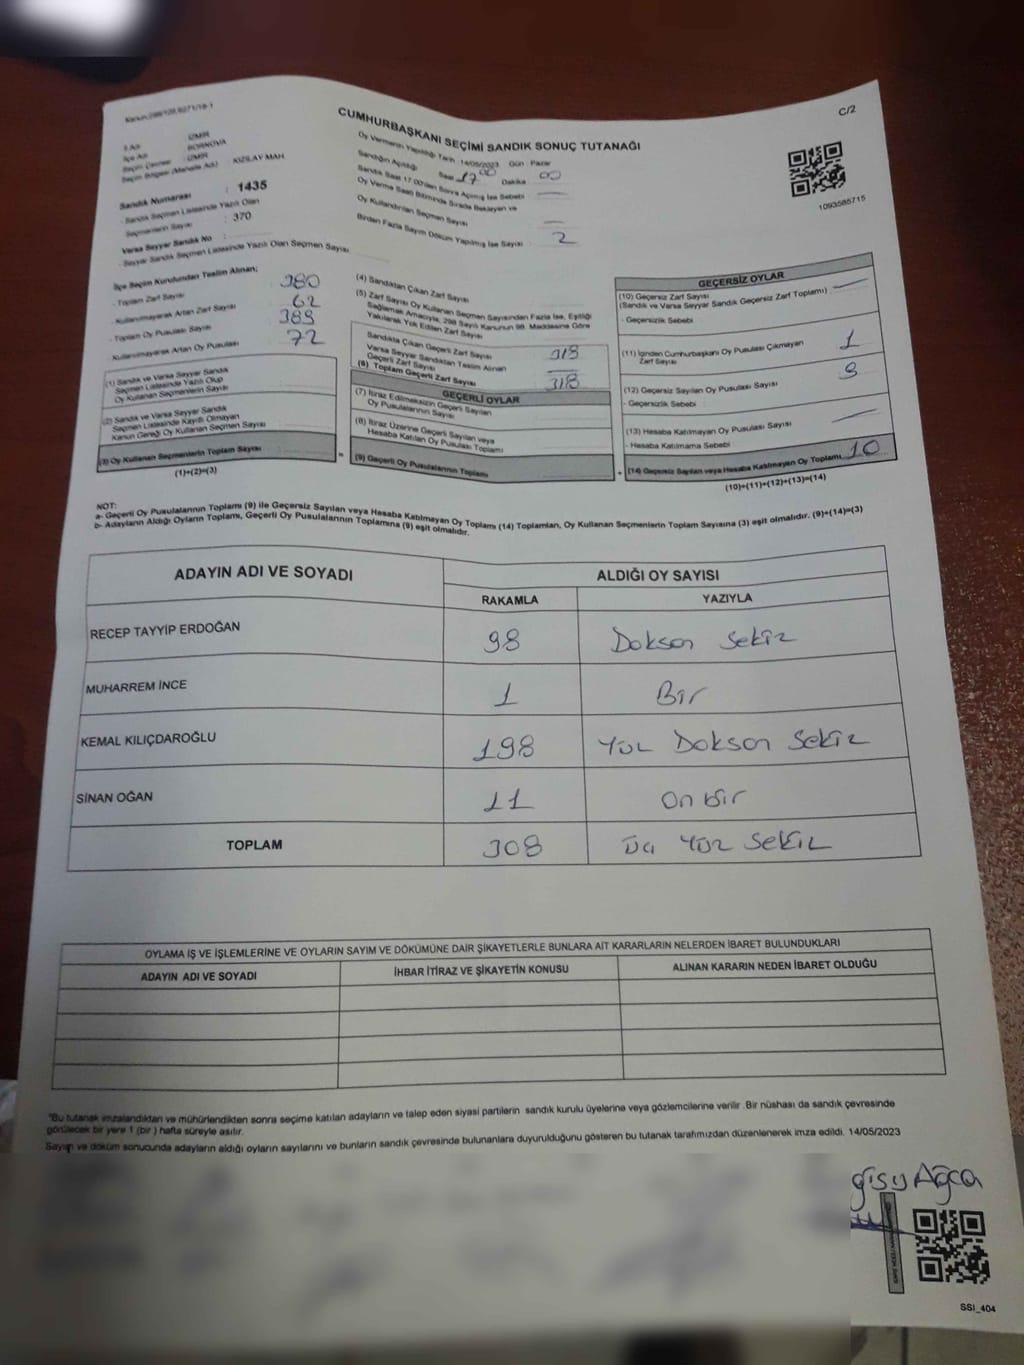 Kanun:298/129,6271/18-1
C/2
CUMHURBAŞKANI SEÇİMİ SANDIK SONUÇ TUTANAĞI
İl Adı : İZMİR
İlçe Adı : BORNOVA
Seçim Çevresi : İZMİR
Seçim Bölgesi (Mahalle Adı) : KIZILAY MAH.
Sandık Numarası : 1435
- Sandık Seçmen Listesinde Yazılı Olan
Seçmenlerin Sayısı : 370
Varsa Seyyar Sandık No :
- Seyyar Sandık Seçmen Listesinde Yazılı Olan Seçmen Sayısı
Oy Vermenin Yapıldığı Tarih : 14/05/2023 Gün : Pazar
Sandığın Açıldığı Saat 17 00 Dakika 00
Sandık Saat 17.00'den Sonra Açılmış İse Sebebi —
Oy Verme Saati Bitiminde Sırada Bekleyen ve
Oy Kullandırılan Seçmen Sayısı —
Birden Fazla Sayım Döküm Yapılmış İse Sayısı 2
1093585715
İlçe Seçim Kurulundan Teslim Alınan;
- Toplam Zarf Sayısı 380
- Kullanılmayarak Artan Zarf Sayısı 62
- Toplam Oy Pusulası Sayısı 389
- Kullanılmayarak Artan Oy Pusulası 72
(1) Sandık ve Varsa Seyyar Sandık
Seçmen Listesinde Yazılı Olup
Oy Kullanan Seçmenlerin Sayısı
(2) Sandık ve Varsa Seyyar Sandık
Seçmen Listesinde Kayıtlı Olmayan
Kanun Gereği Oy Kullanan Seçmen Sayısı
(3) Oy Kullanan Seçmenlerin Toplam Sayısı
(1)+(2)=(3)
=
(4) Sandıktan Çıkan Zarf Sayısı
(5) Zarf Sayısı Oy Kullanan Seçmen Sayısından Fazla İse, Eşitliği
Sağlamak Amacıyla, 298 Sayılı Kanunun 98. Maddesine Göre
Yakılarak Yok Edilen Zarf Sayısı
Sandıkta Çıkan Geçerli Zarf Sayısı 318
Varsa Seyyar Sandıktan Teslim Alınan
Geçerli Zarf Sayısı —
(6) Toplam Geçerli Zarf Sayısı 318
GEÇERLİ OYLAR
(7) İtiraz Edilmeksizin Geçerli Sayılan
Oy Pusulalarının Sayısı
(8) İtiraz Üzerine Geçerli Sayılan veya
Hesaba Katılan Oy Pusulası Toplamı
(9) Geçerli Oy Pusulalarının Toplamı
+
GEÇERSİZ OYLAR
(10) Geçersiz Zarf Sayısı
(Sandık ve Varsa Seyyar Sandık Geçersiz Zarf Toplamı) —
- Geçersizlik Sebebi
(11) İçinden Cumhurbaşkanı Oy Pusulası Çıkmayan
Zarf Sayısı 1
(12) Geçersiz Sayılan Oy Pusulası Sayısı 9
- Geçersizlik Sebebi
(13) Hesaba Katılmayan Oy Pusulası Sayısı —
- Hesaba Katılmama Sebebi
(14) Geçersiz Sayılan veya Hesaba Katılmayan Oy Toplamı 10
(10)+(11)+(12)+(13)=(14)
NOT:
a- Geçerli Oy Pusulalarının Toplamı (9) ile Geçersiz Sayılan veya Hesaba Katılmayan Oy Toplamı (14) Toplamları, Oy Kullanan Seçmenlerin Toplam Sayısına (3) eşit olmalıdır. (9)+(14)=(3)
b- Adayların Aldığı Oyların Toplamı, Geçerli Oy Pusulalarının Toplamına (9) eşit olmalıdır.
ADAYIN ADI VE SOYADI
ALDIĞI OY SAYISI
RAKAMLA YAZIYLA
RECEP TAYYİP ERDOĞAN 98 Doksan Sekiz
MUHARREM İNCE 1 Bir
KEMAL KILIÇDAROĞLU 198 Yüz Doksan Sekiz
SİNAN OĞAN 11 On bir
TOPLAM 308 Üç Yüz Sekiz
OYLAMA İŞ VE İŞLEMLERİNE VE OYLARIN SAYIM VE DÖKÜMÜNE DAİR ŞİKAYETLERLE BUNLARA AİT KARARLARIN NELERDEN İBARET BULUNDUKLARI
ADAYIN ADI VE SOYADI İHBAR İTİRAZ VE ŞİKAYETİN KONUSU ALINAN KARARIN NEDEN İBARET OLDUĞU
"Bu tutanak imzalandıktan ve mühürlendikten sonra seçime katılan adayların ve talep eden siyasi partilerin sandık kurulu üyelerine veya gözlemcilerine verilir. Bir nüshası da sandık çevresinde
görülecek bir yere 1 (bir) hafta süreyle asılır.
Sayım ve döküm sonucunda adayların aldığı oyların sayılarını ve bunların sandık çevresinde bulunanlara duyurulduğunu gösteren bu tutanak tarafımızdan düzenlenerek imza edildi. 14/05/2023
Ağca
SSI_404